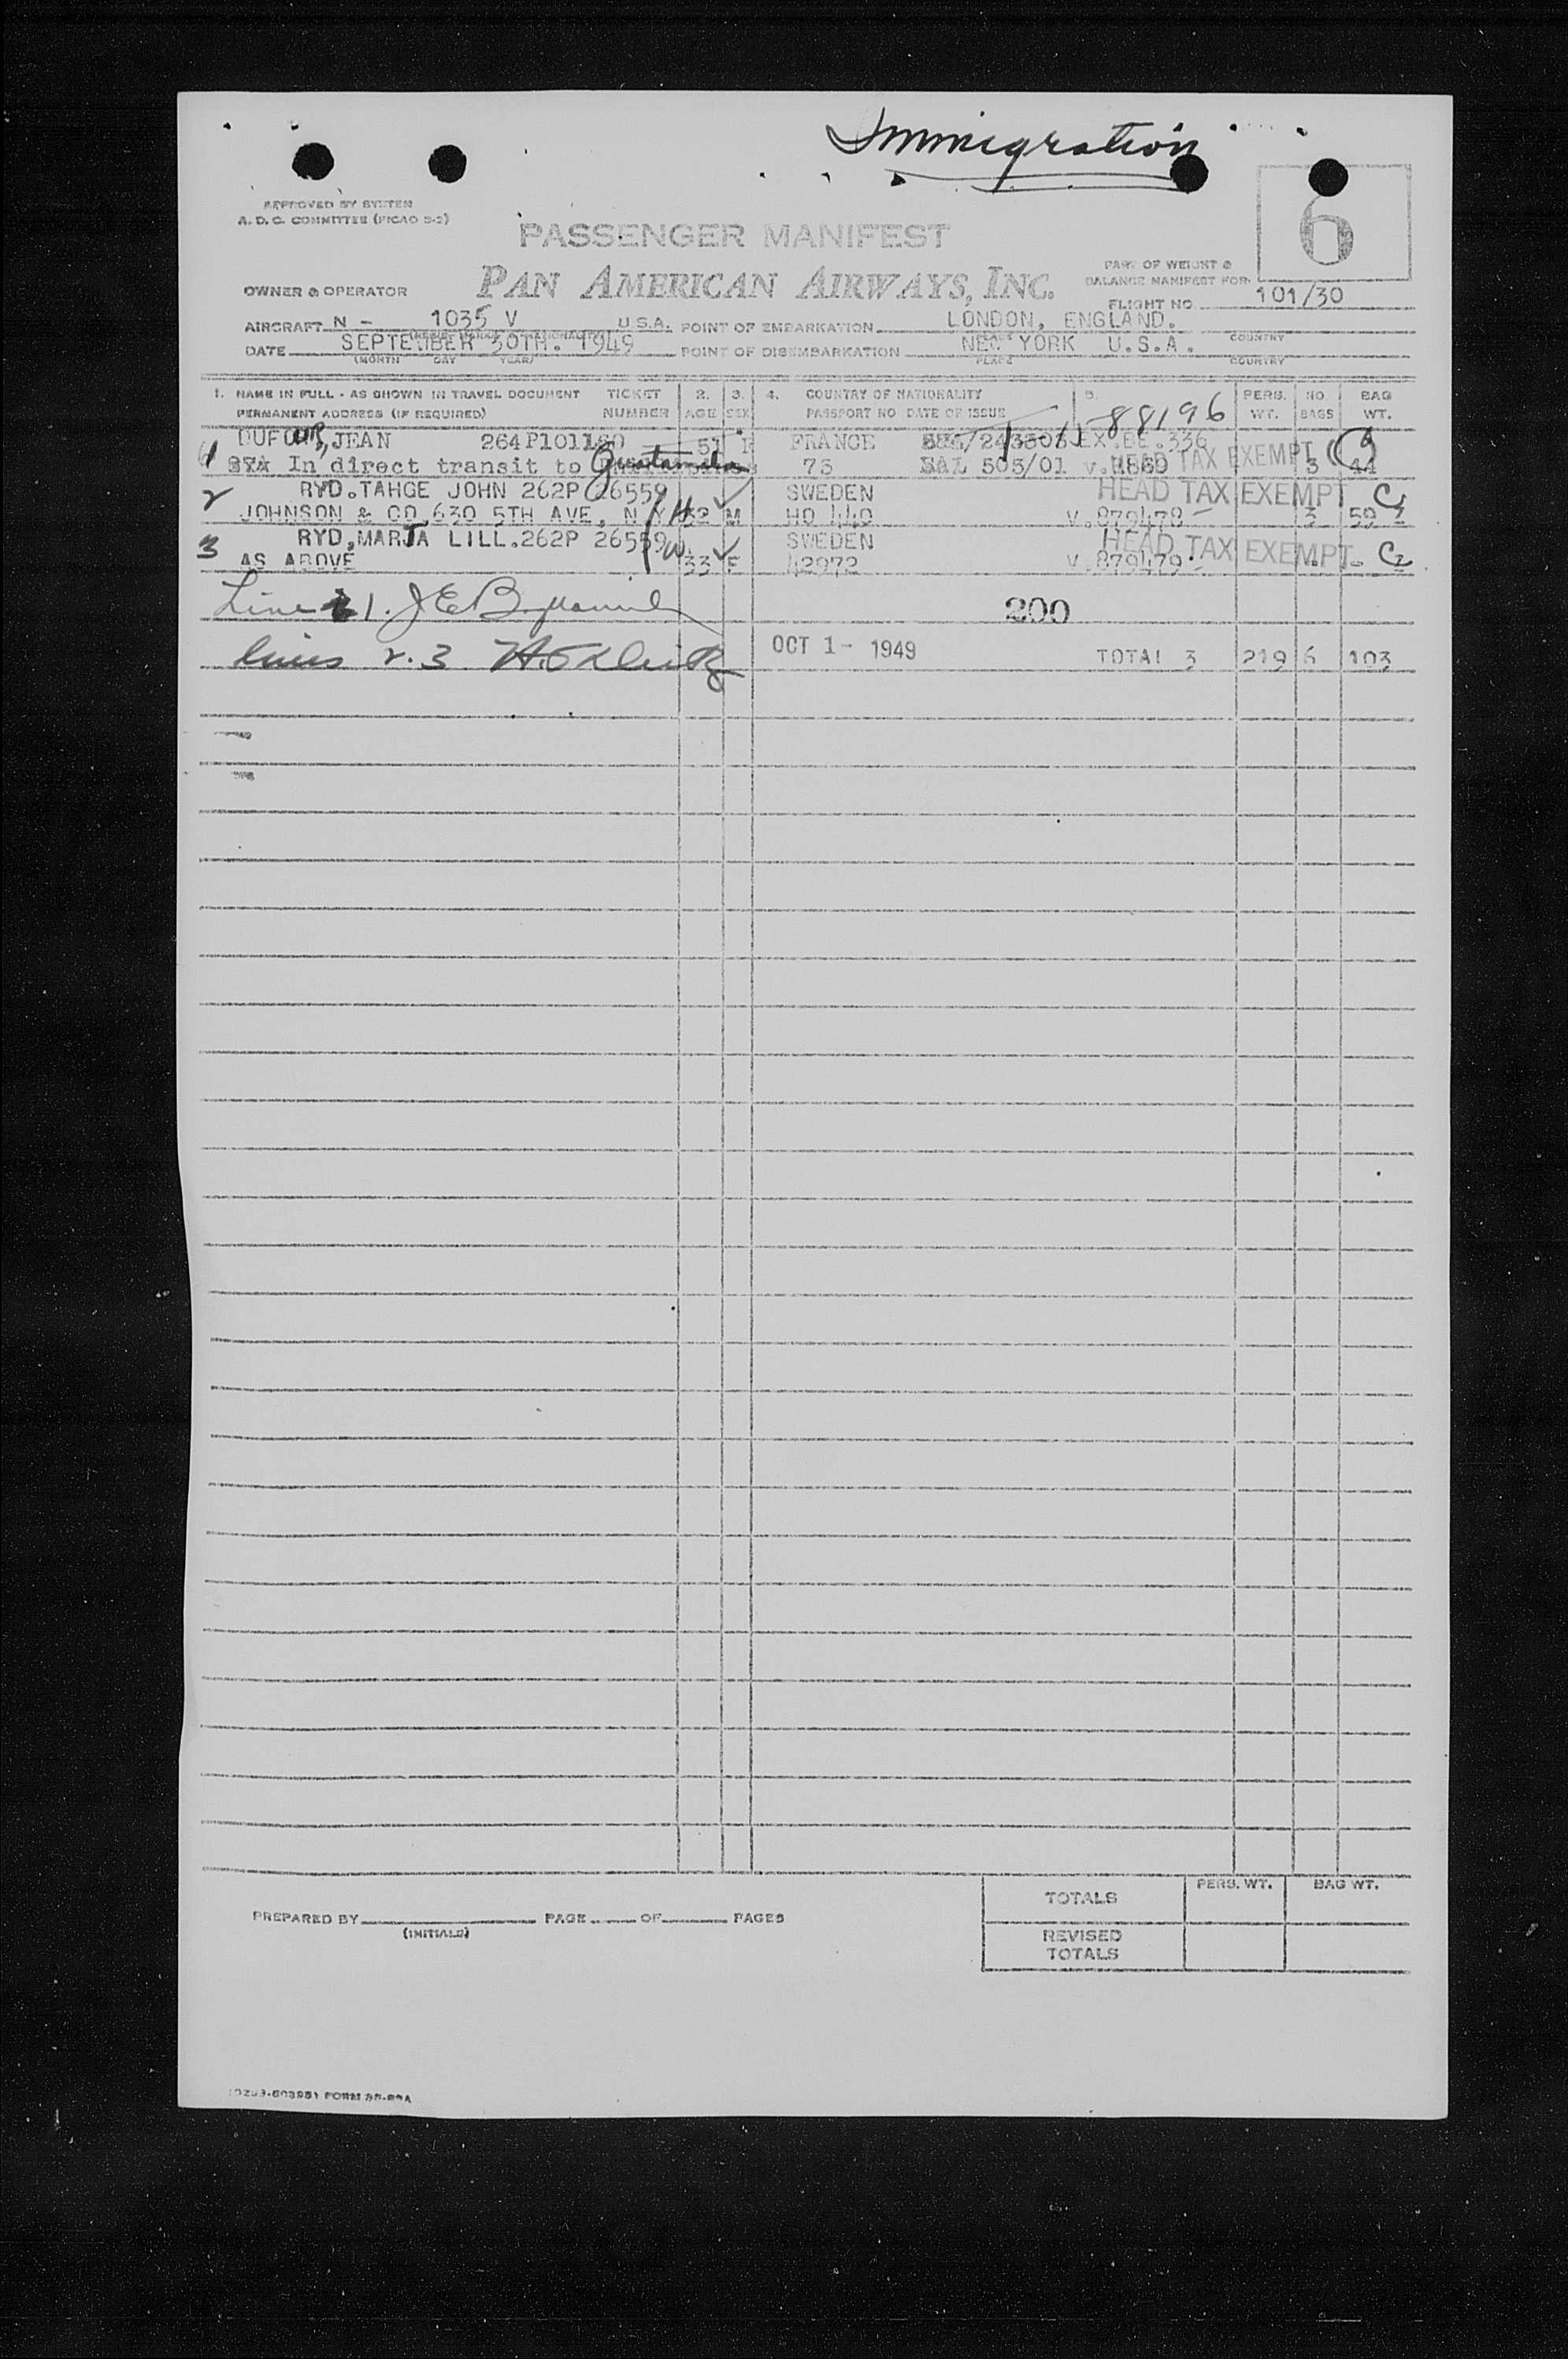 Immigration
APPROVED BY SYSTEM
A. D. C. COMMITTEE (FICAO S-2)
6
PASSENGER MANIFEST
PART OF WEIGHT &
BALANCE MANIFEST FOR
OWNER & OPERATOR PAN AMERICAN AIRWAYS, INC.
FLIGHT NO. 101/30
AIRCRAFT N - 1035 V U.S.A. POINT OF EMBARKATION LONDON, ENGLAND.
COUNTRY
DATE SEPTEMBER 30TH. 1949 POINT OF DISEMBARKATION NEW YORK U.S.A.
(MONTH DAY YEAR) PLACE COUNTRY
1. NAME IN FULL - AS SHOWN IN TRAVEL DOCUMENT TICKET 2. 3. 4. COUNTRY OF NATIONALITY 5. PERS. NO BAG
PERMANENT ADDRESS (IF REQUIRED) NUMBER AGE SEX PASSPORT NO DATE OF ISSUE WT. BAGS WT.
88196
DUFOUR, JEAN 264P101180 51 FRANCE EX.BE.336
1 In direct transit to Guatamala 75 SAL 505/01 HEAD TAX EXEMPT 3 44
2 RYD. TAHGE JOHN 262P 26559 SWEDEN HEAD TAX EXEMPT
JOHNSON & CO 630 5TH AVE, N Y H 32 M HO 440 V.879478 3 59
3 RYD, MARTA LILL. 262P 26559 W SWEDEN HEAD TAX EXEMPT
AS ABOVE 33 F 42972 V.879479
Line 1. 200
lines 2. 3 OCT 1- 1949 TOTAL 3 219 6 103
TOTALS PERS. WT. BAG WT.
PREPARED BY PAGE OF PAGES
(INITIALS)
REVISED
TOTALS